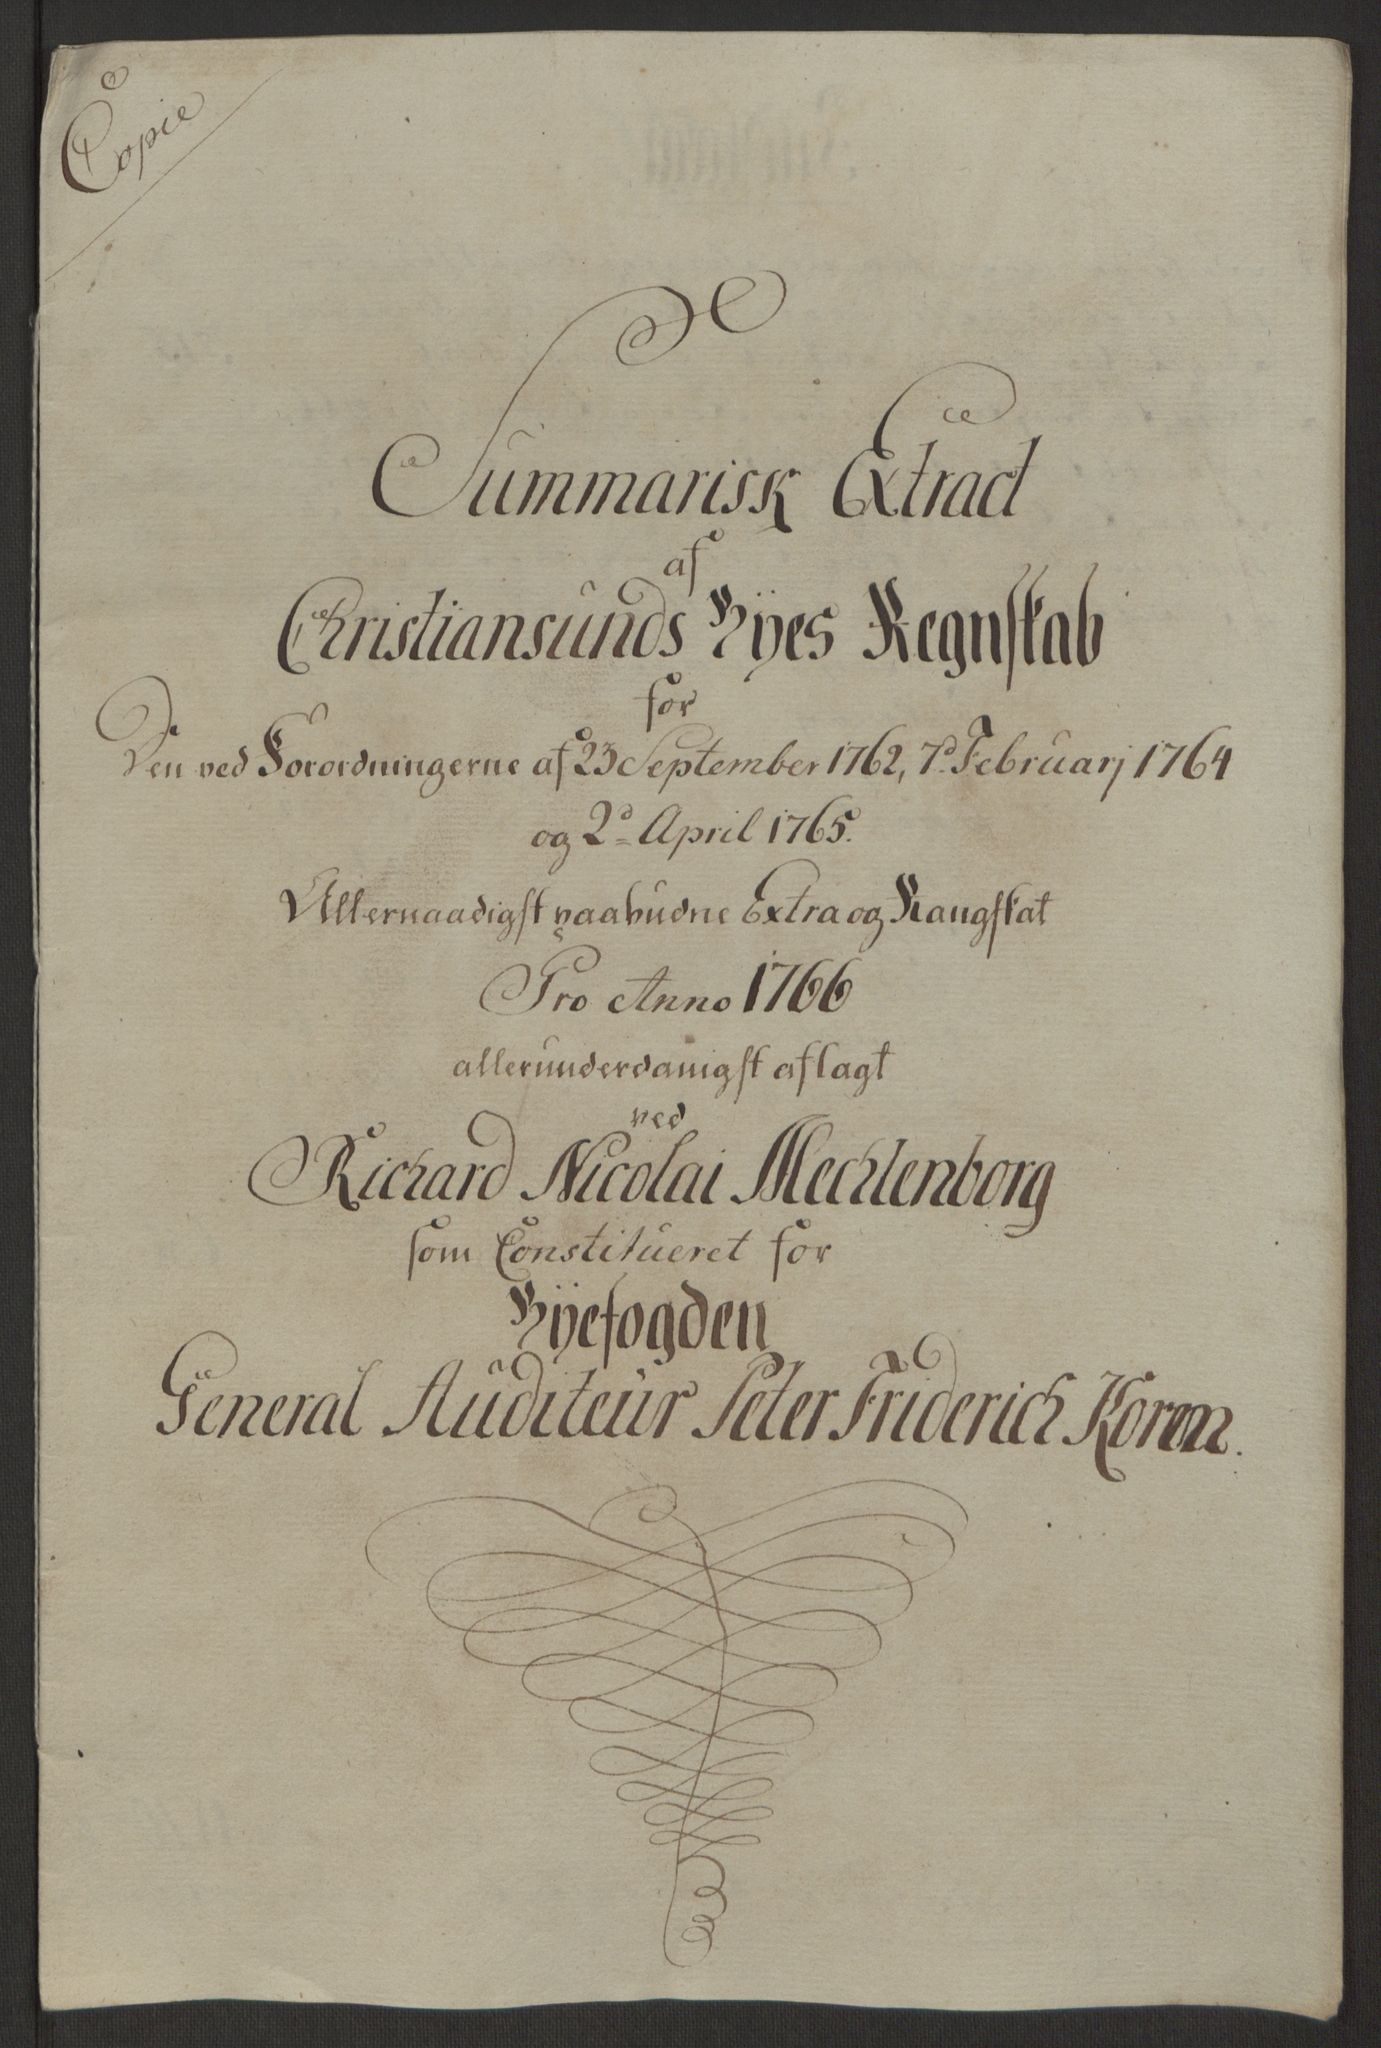 Copie
Summarisk Extract
af
Christiansunds Byes Regnskab
for
Den ved Forordningerne af 23 September 1762, 7d Februarj 1764
og 2d April 1765.
Allernaadigst paabudne Extra og Rangskat
Pro Anno 1766
allerunderdanigst aflagt
ved
Richard Nicolai Mechlenborg
som Constitueret for
Byefogden
General Auditeur Peter Friderich Korem.